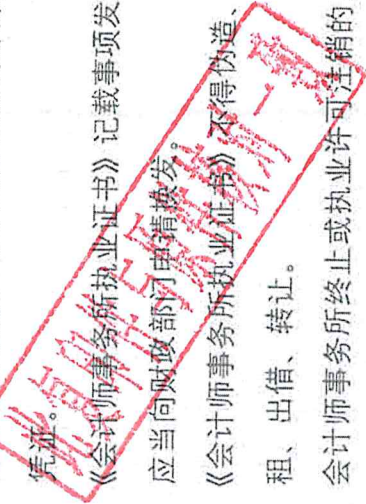 凭证。
《会计师事务所执业证书》记载事项发
应当向财政部门申请换发。
《会计师事务所执业证书》不得伪造、
租、出借、转让。
会计师事务所终止或执业许可注销的